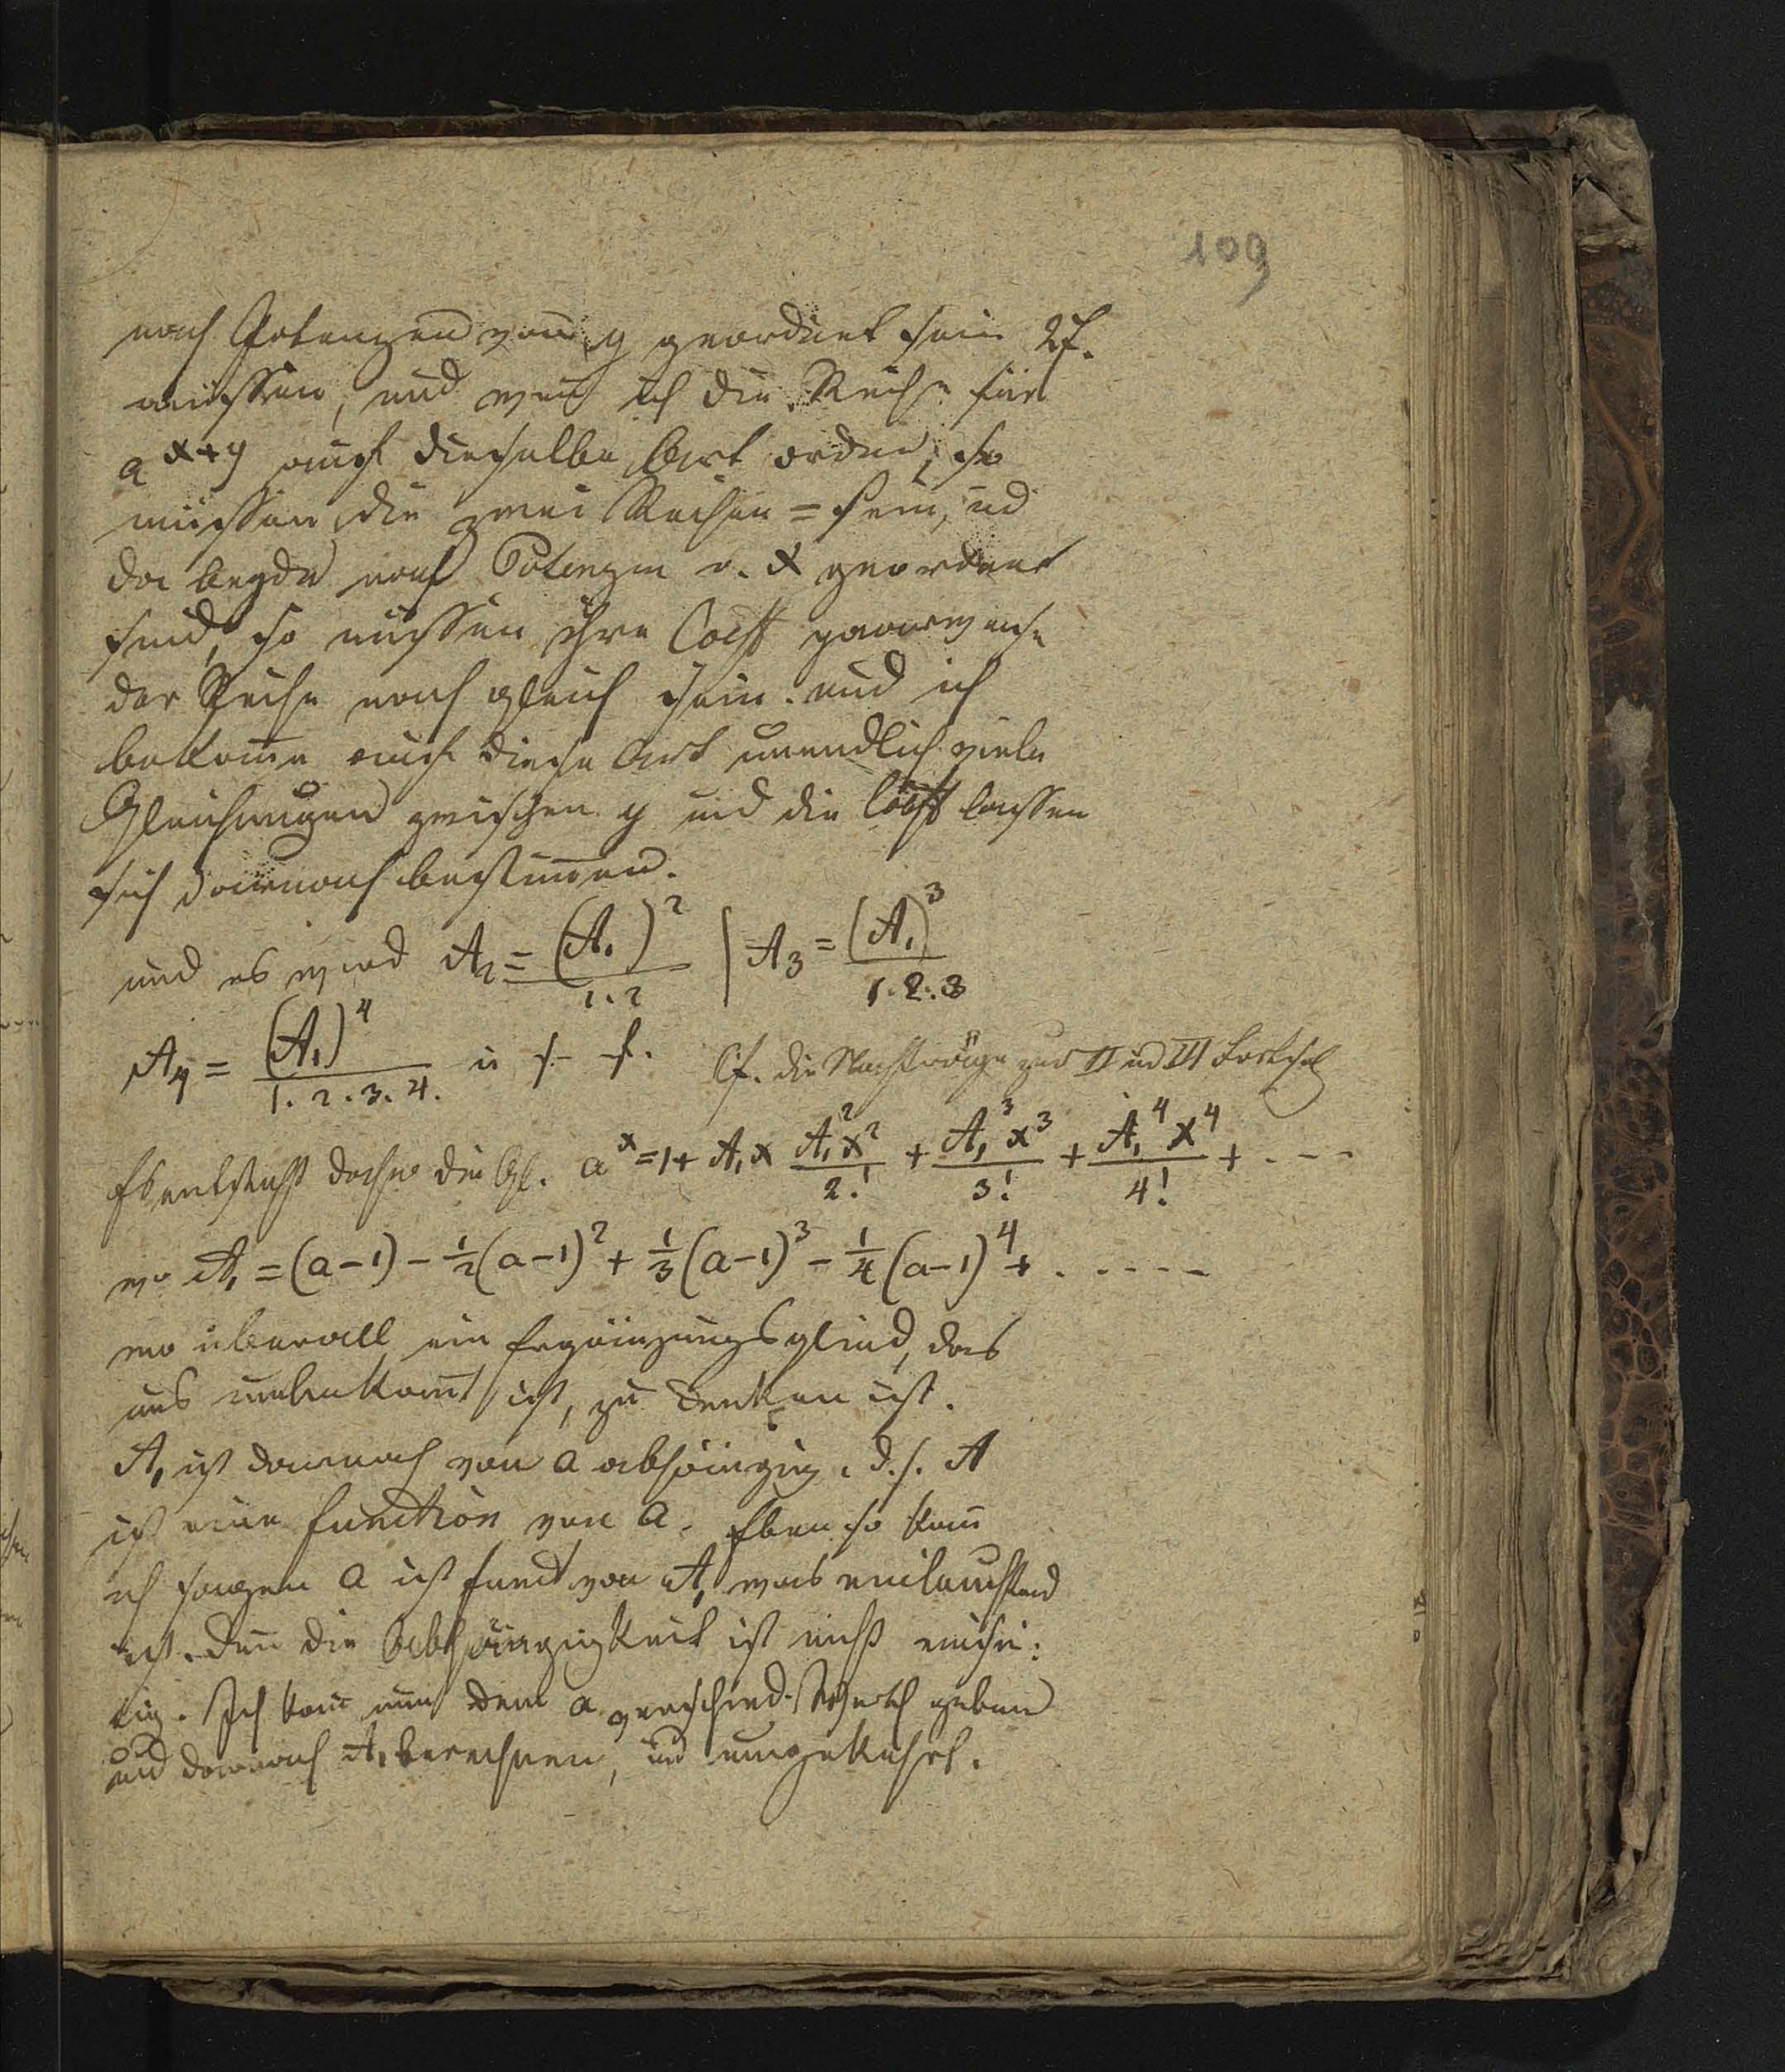 109
nach Potenzen von y geordnet sein 27.
müssen, und wenn ich die Reihe für
a^{x+y} auf dieselbe Art ordne, so
müssen die zwei Reihen = sein, ud
da beyde nach Potenzen v. x geordnet
sind, so müssen ihre Coeff paarweise
der Reihe nach gleich sein. und ich
bekom̄e auf diese Art unendlich viele
Gleichungen zwischen y und die Coeff lassen
sich darnach bestim̄en.
und es wird A₂ = (A₁)²/1.2 | A₃ = (A₁)³/1.2.3
A₄ = (A₁)⁴/1.2.3.4. u s. f. Cf. die Nachträge zur II ud III
Es entsteht daher die Gl. a^x = 1 + A₁x A₁²x²/2! + A₁³x³/3! + A₁⁴x⁴/4! + . - - -
wo A₁ = (a-1) - ½(a-1)² + ⅓(a-1)³ - ¼(a-1)⁴ + . - - - -
wo überall ein Ergänzungsglied, das
uns unbekan̄t ist, zu denken ist.
A₁ ist darnach von a abhängig, d.h. A
ist eine Function von a. Eben so kan̄
ich sagen a ist Funct von A₁ was einleuchtend
ist. Den̄ die Abhängigkeit ist nicht einsei:
tig. Ich kan̄ nun dem a verschied. Werth geben
und darnach A₁ berechnen, ud umgekehrt.